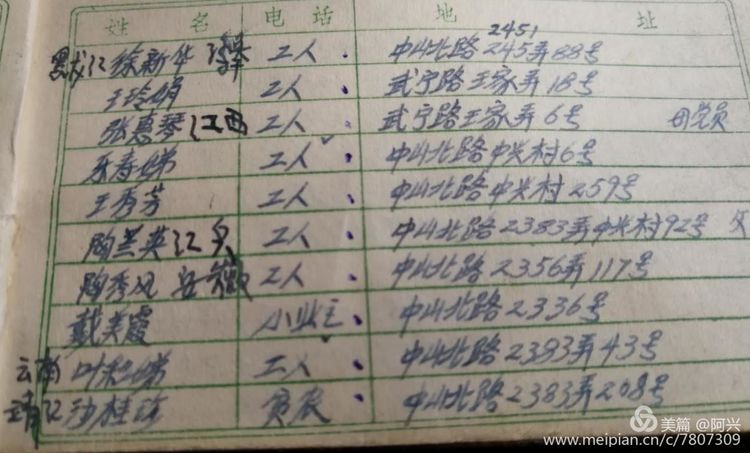 姓 名 电 话 地 址
黑龙江 徐新华 工人 中山北路245弄88号 2451
王玲娟 工人 武宁路王家弄18号
张惠琴 江西 工人 武宁路王家弄6号 母党员
乐春娣 工人 中山北路中兴村6号
王秀芳 工人 中山北路中兴村259号
陶慧英 江西 工人 中山北路2383弄中兴村92号 父
陶秀凤 安徽 工人 中山北路2356弄117号
戴美霞 小业主 中山北路2336号
云南 叶和娣 工人 中山北路2393弄43号
江 沙桂珍 贫农 中山北路2383弄208号
美篇 @阿兴
www.meipian.cn/c/7807309